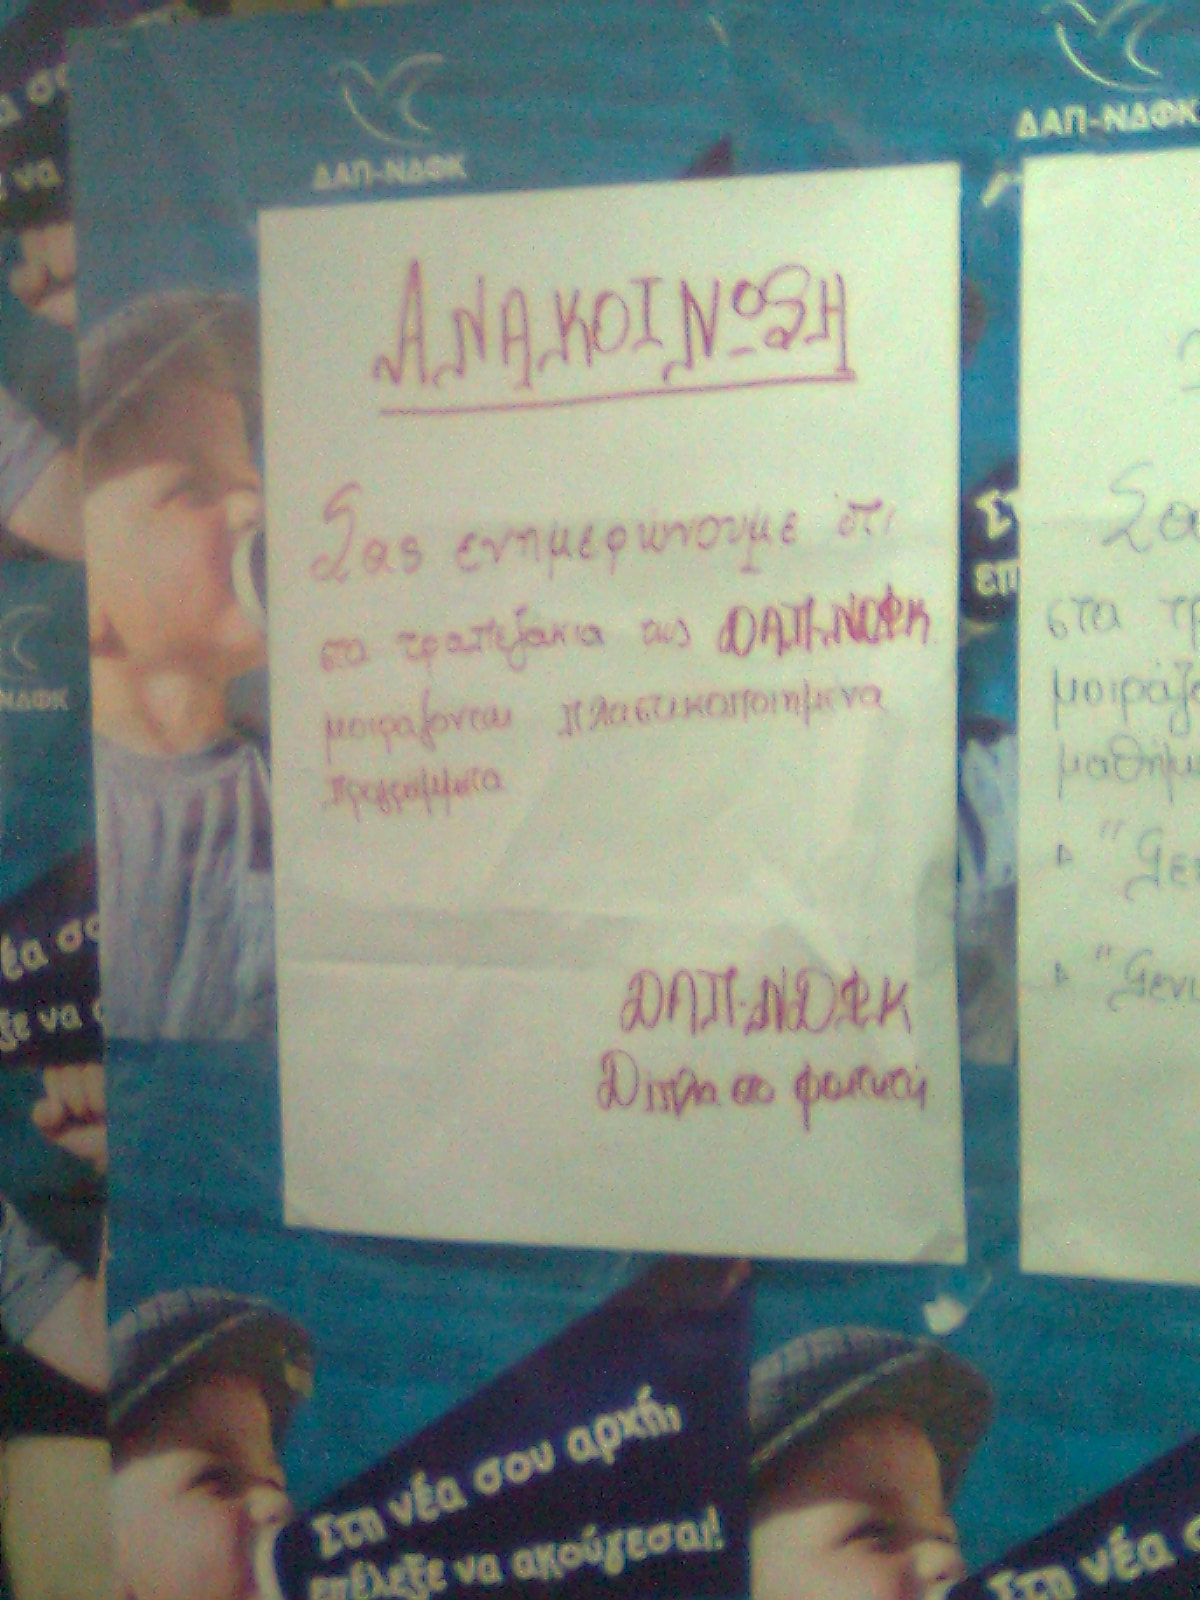 ΔΑΠ-ΝΔΦΚ
ΔΑΠ-ΝΔΦΚ
ΑΝΑΚΟΙΝΩΣΗ
Σας ενημερώνουμε ότι
στα τραπεζάκια της ΔΑΠ-ΝΔΦΚ
μοιράζονται πλαστικοποιημένα
προγράμματα
ΔΑΠ-ΝΔΦΚ
Δίπλα στο φοιτητή
στα τρ
μοιράζο
μαθήμ
"Gen
Στη νέα σου αρχή,
επέλεξε να ακούγεσαι!
Στη νέα σ
έα σο
ξε να
ΝΔΦΚ